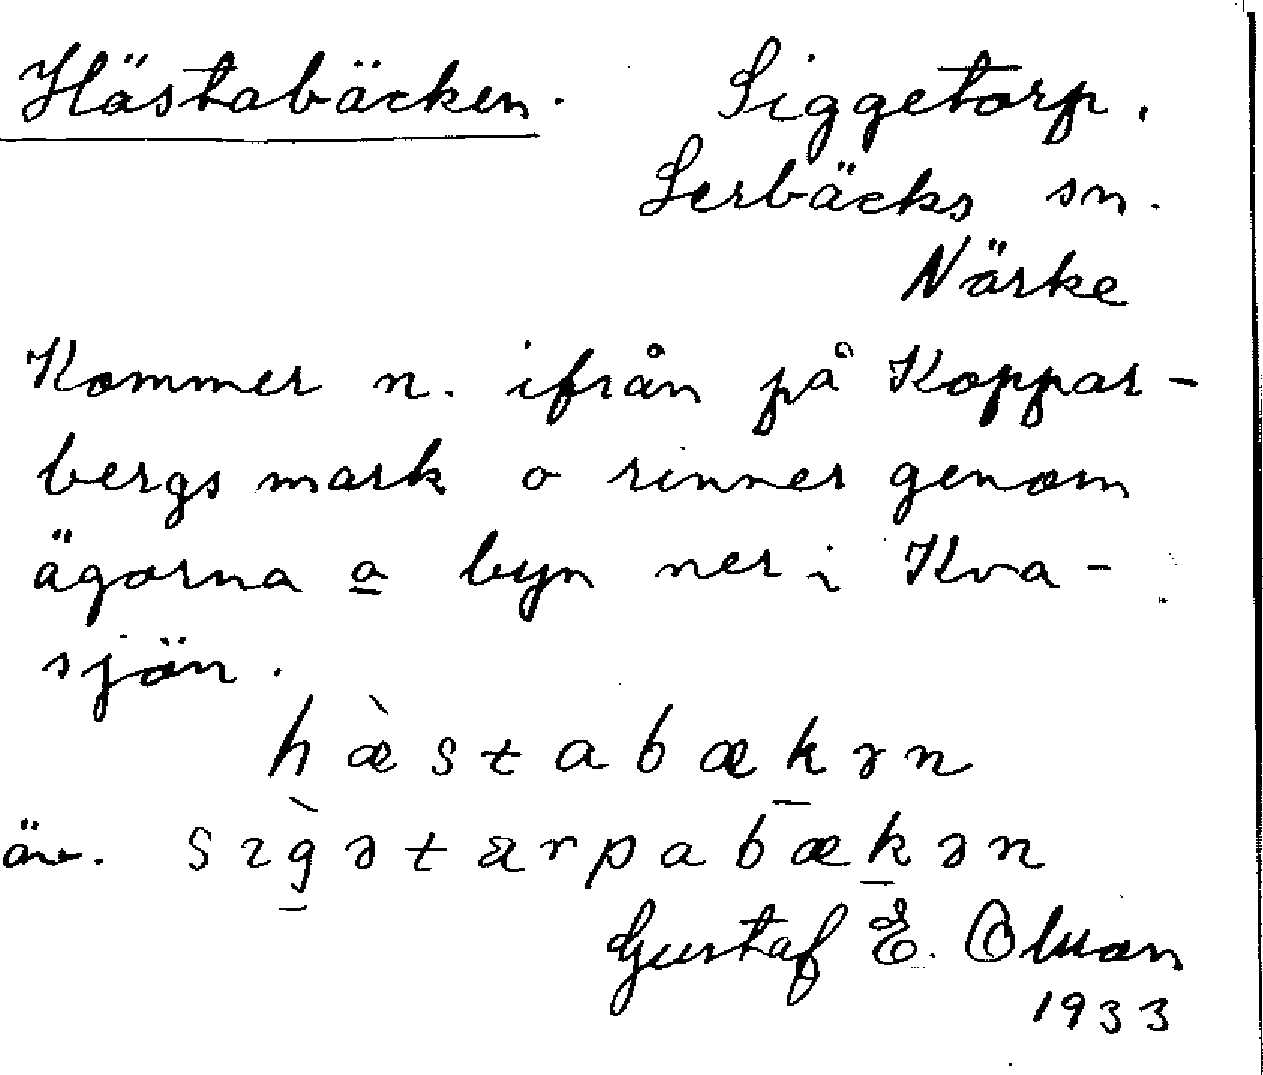 Hästabäcken. Siggetorp.
Lerbäcks sn.
Närke
Kommer n. ifrån på Koppar-
bergs mark o rinner genom
ägorna a byn ner i Kva-
sjön.
hæ̀stabækən
äv. sıg̀ətarpabækən
Gustaf E. Olsson
1933